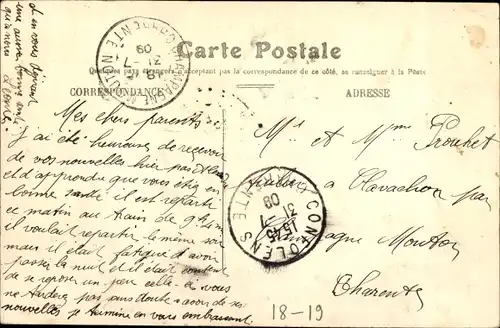 Carte Postale
Quelques pays étrangers n'acceptant pas la correspondance de ce côté, se renseigner à la Poste
CORRESPONDANCE
ADRESSE
Mes chers parents
J'ai été heureuse de recevoir
de vos nouvelles hier
et d'apprendre que vous étiez en
bonne santé il est reparti
ce matin au train de 9h
il voulait repartir le même soir
mais il était fatigué d'avoir
passer la nuit et il était content
de se reposer un peu celle-ci vous
ne tarderez pas sans doute a avoir de ses
nouvelles je termine en vous embrassant
en vous désirant
une aussi bonne santé
qu'à nous
Mr et Mme Prouhet
a Clavachon par
Champagne Mouton
Charente
CHAMPAGNE MOUTON
CHARENTE
31 -7
09
CONFOLENS
CHARENTE
15 45
31 -7
09
18-19